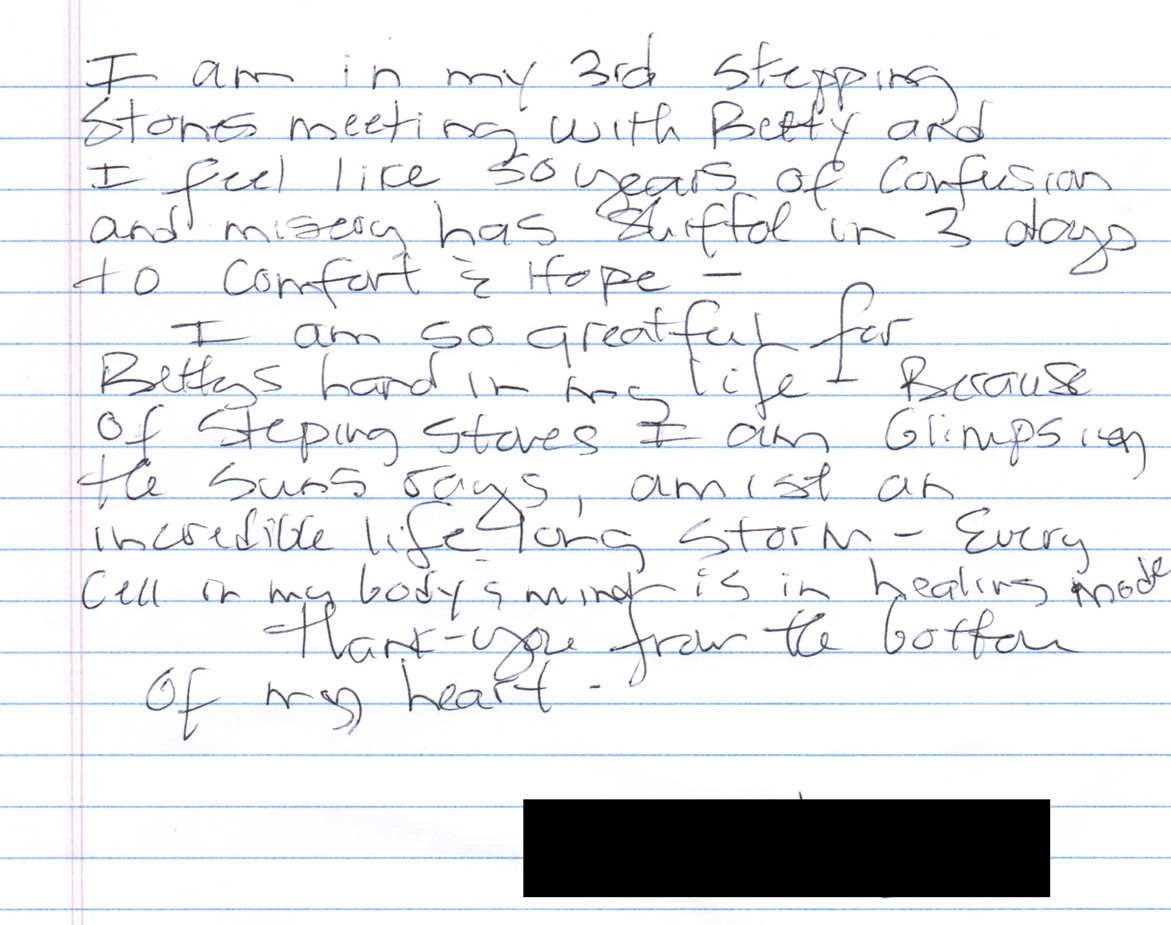 I am in my 3rd Stepping
Stones meeting with Betty and
I feel like 50 years of Confusion
and misery has in 3 days
to Comfort & Hope -
I am so greatful for
Bettys hand in my life - Because
Of Steping Stones I am Glimpsing
the Suns rays, amist an
incredible life long Storm - Every
Cell in my body & mind is in healing mode
Thank-you from the bottom
Of my heart -